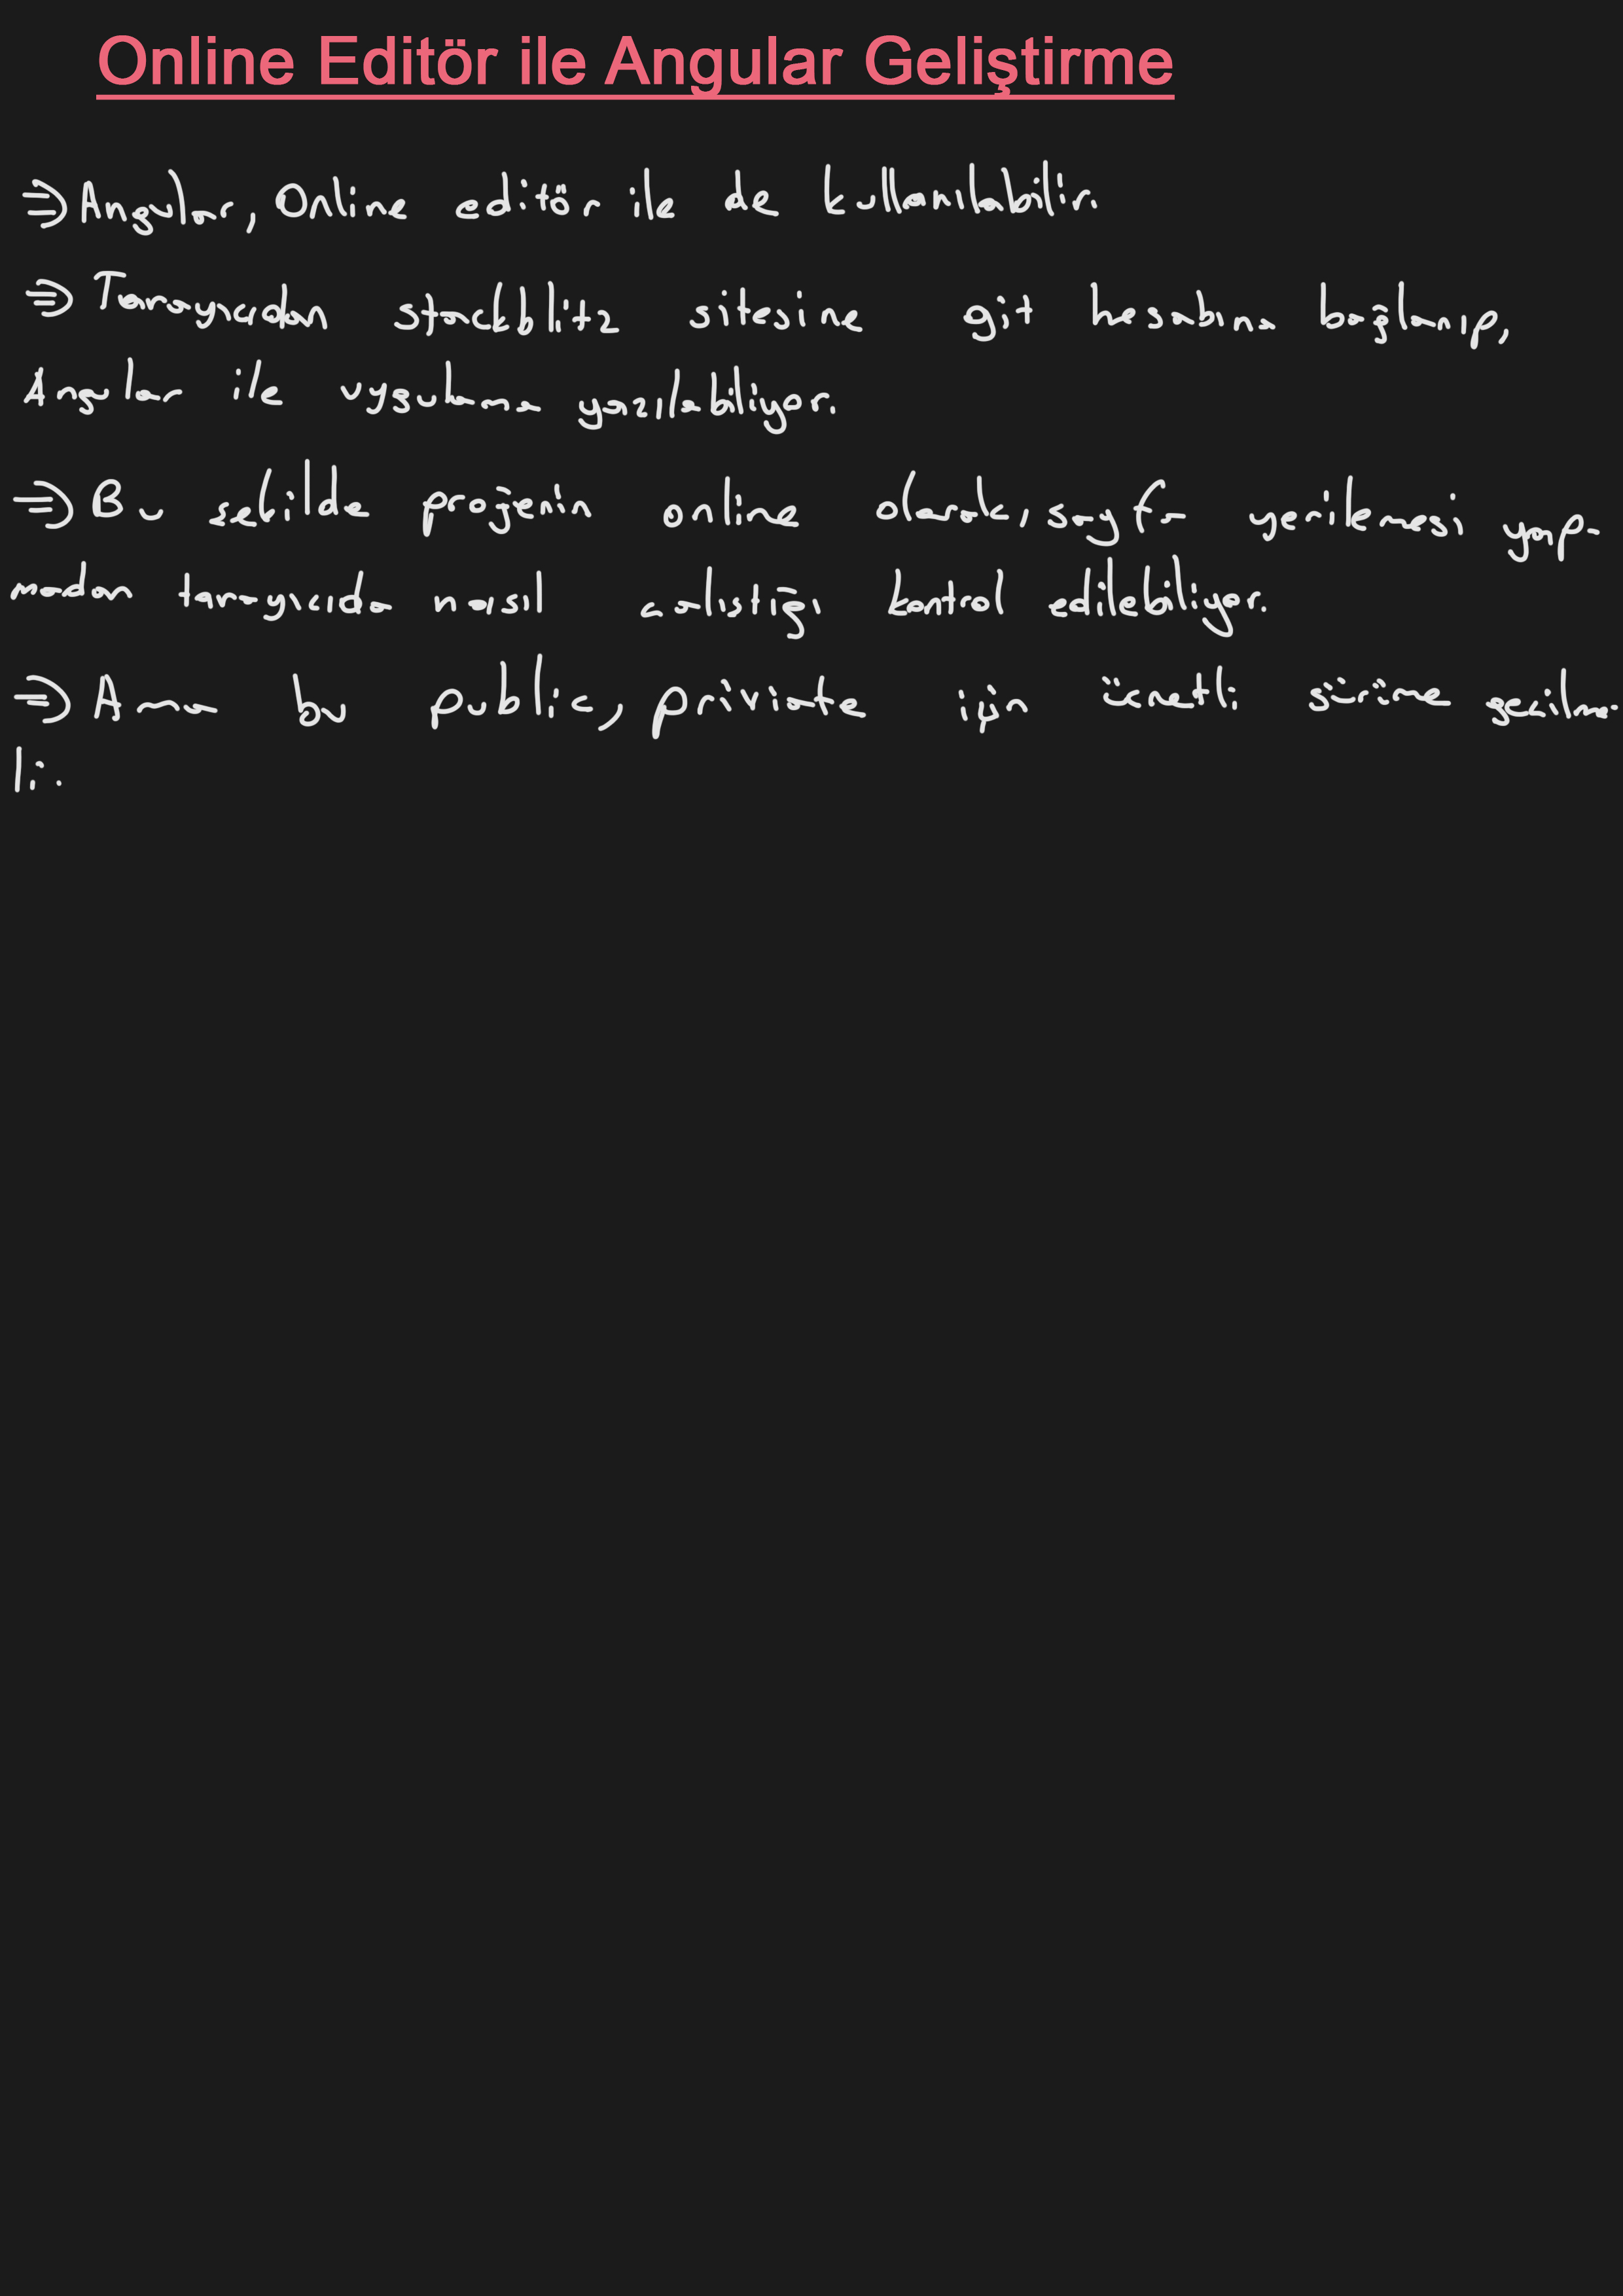 Online Editör ile Angular Geliştirme
⇒ Angular, Online editör ile de kullanılabilir.
⇒ Tarayıcadan stackblitz sitesine git hesabına bağlanıp,
Angular ile uygulama yazılabiliyor.
⇒ Bu şekilde projenin online olarak, sayfa yenilemesi yap-
madan tarayıcıda nasıl çalıştığı kontrol edilebiliyor.
⇒ Ama bu public, private için ücretli sürüme geçilme-
li.